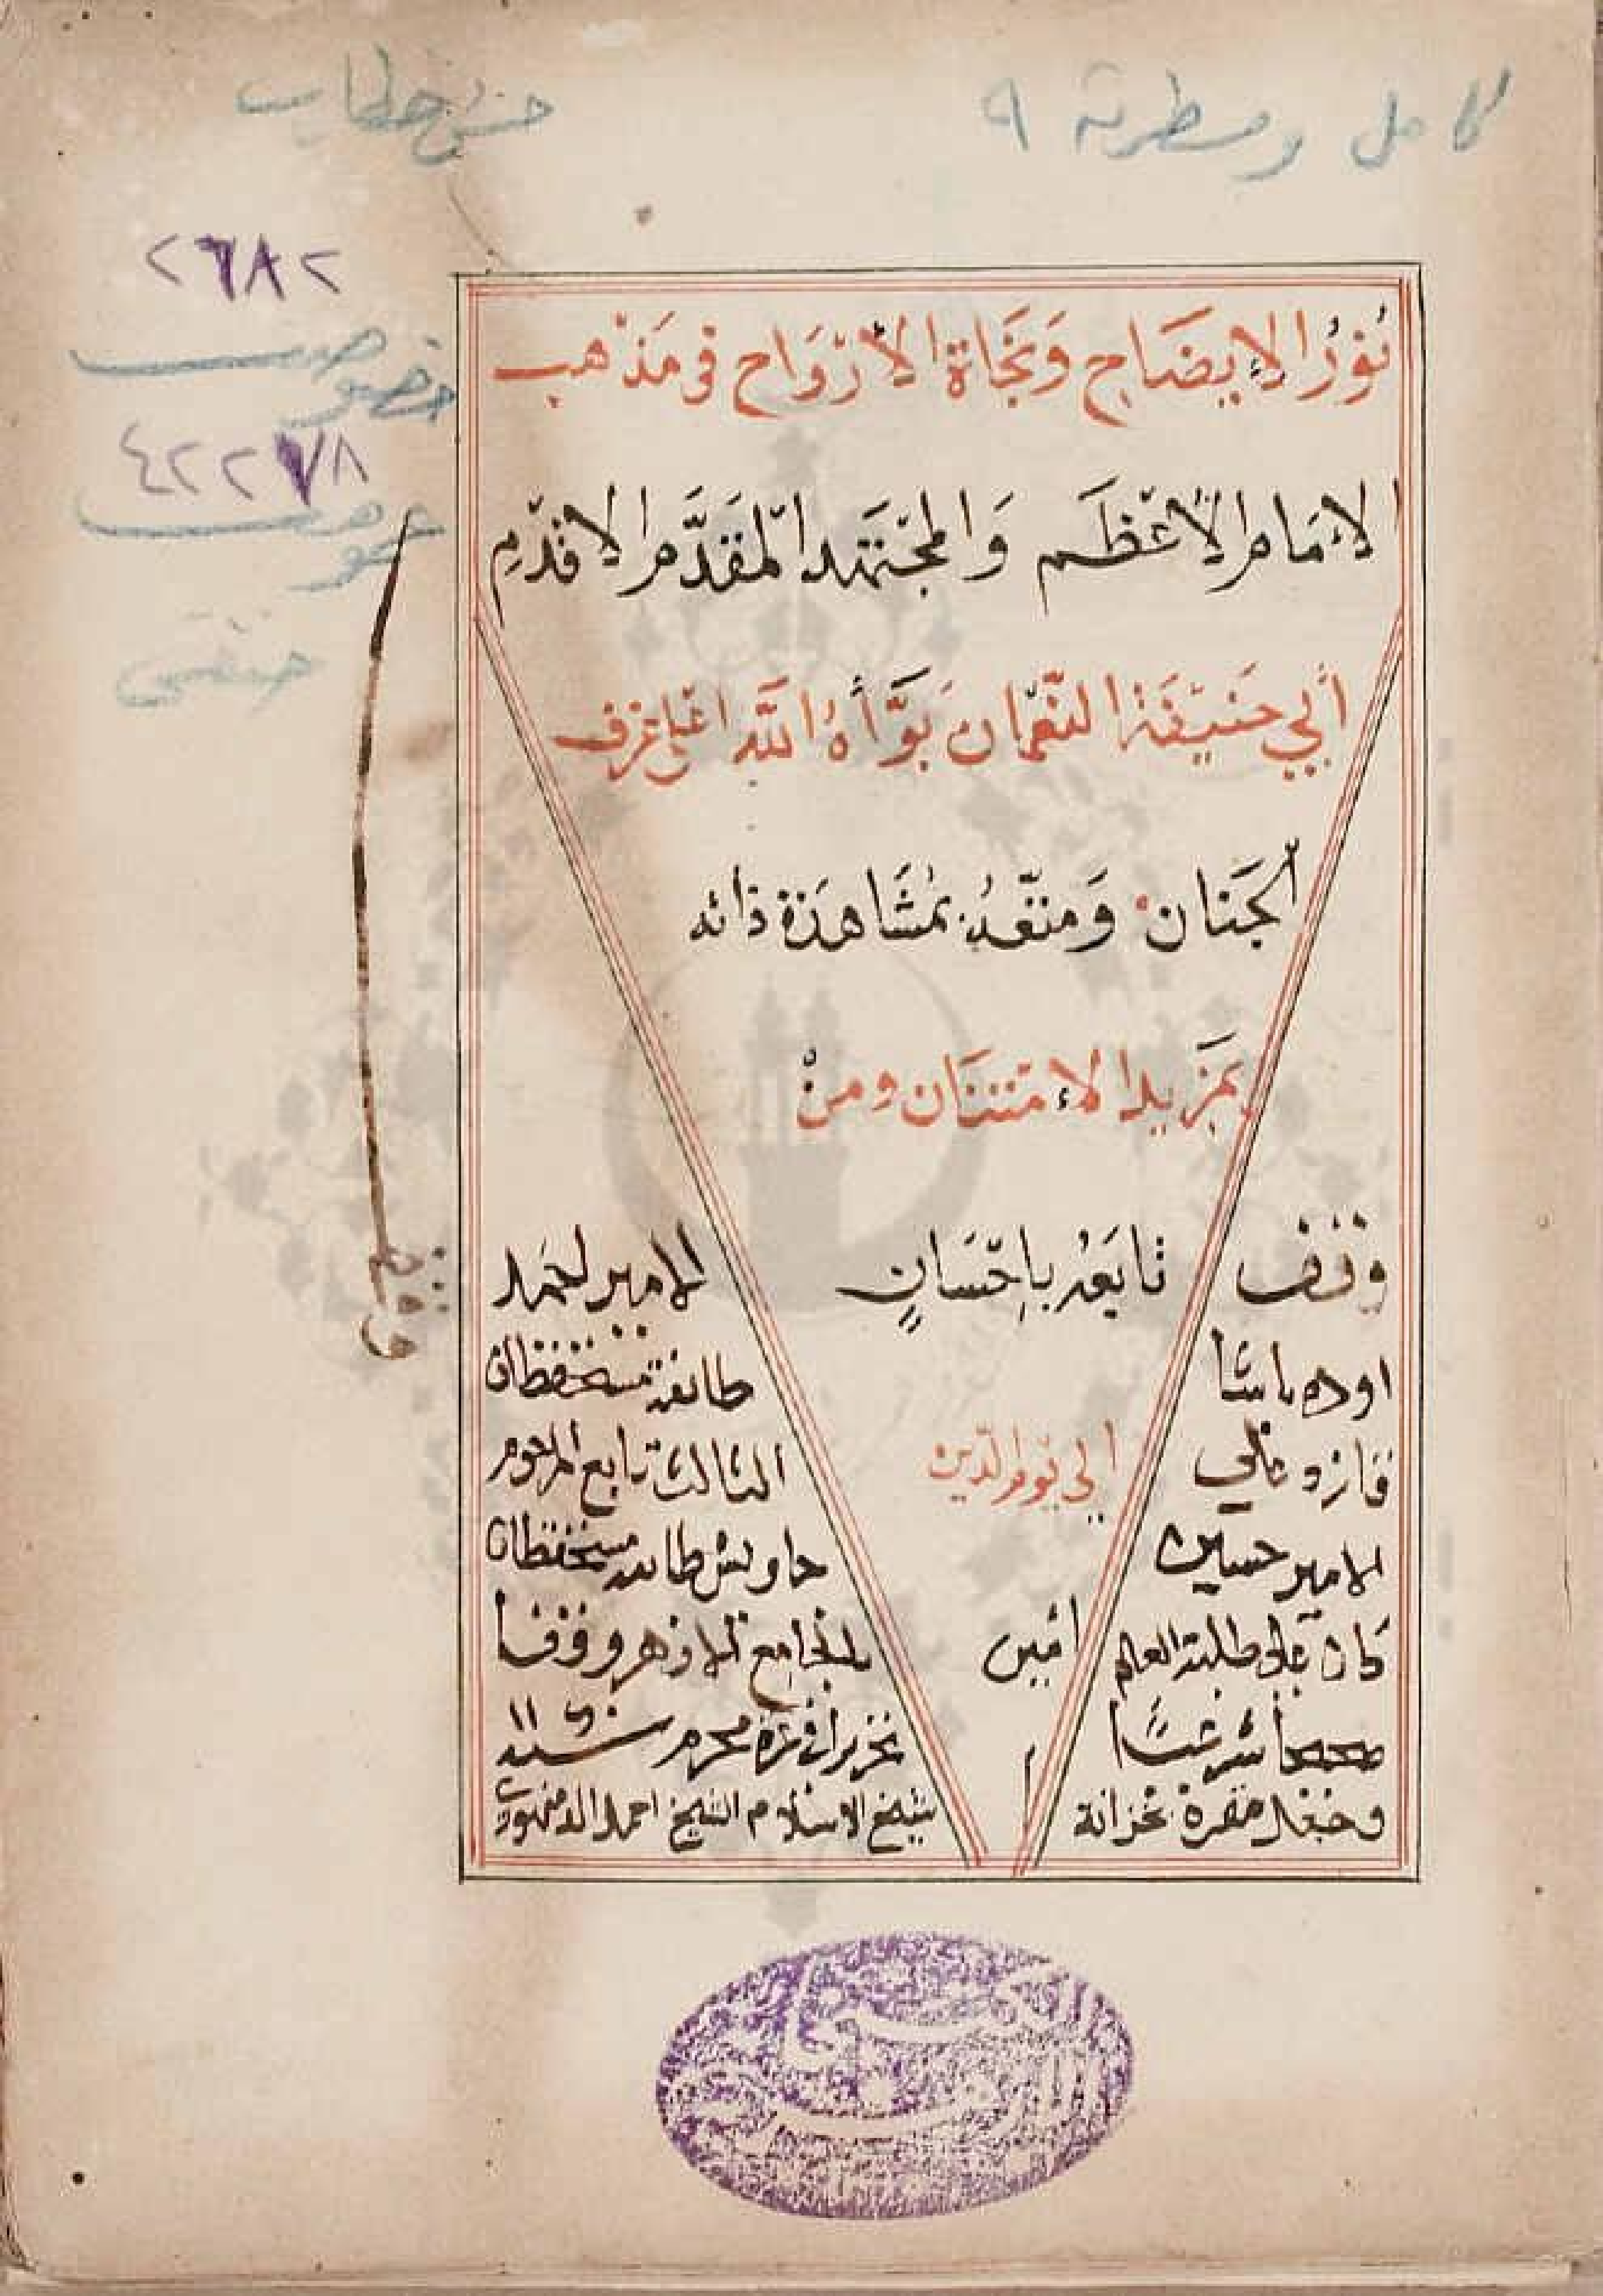 كامل ومسطرته ٩
حسن خطاب
٢٦٨٢
خصوصية
٤٢٢٧٨
عمومية
حنفي
نُورُ الإِيضَاحِ وَنَجَاةُ الأَرْوَاحِ فى مَذْهب
الإِمَامِ الأَعْظَم وَالمجْتَهِد المقَدَّمِ الاقدَمِ
أَبي حَنِيْفَةَ النّعْمَان بَوَّأَهُ اللَّه اعْلى غرف
الجَنان وَمتّعَهُ بمُشَاهَدَة ذاته
بمَزيد الإمتنَان ومنْ
وقف تابَعَهُ بِاحْسَانٍ الامير احمد
اوده باشا طائفة مستحفظان
قازد غلي الى يوم الدين الثالث تابع المرحوم
الامير حسين جاويش طائفة مستحفظان
كان على طلبة العلم امين بالجامع الازهر وقفا
صحيحا شرعيًا تحريرا في غرة محرم سنة
وجعل مقره بخزانة شيخ الاسلام الشيخ احمد الدمنهوري
وقف